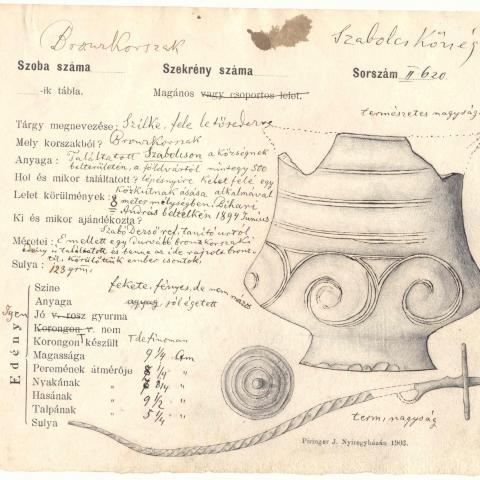 Bronzkorszak
Szabolcs Község
Szoba száma
Szekrény száma
Sorszám II 620.
-ik tábla.
Magános vagy csoportos lelet.
természetes nagyság
Tárgy megnevezése: Szilke, fele letöredezve
Mely korszakból? Bronzkorszak
Anyaga: Találtatott Szabolcson a községnek
belterületén, a földvártól mintegy 500
Hol és mikor találtatott? lépésnyire Kelet felé egy
közkútnak ásása alkalmával
Lelet körülmények: 8 méter mélységben. Bihari
András beltelkén 1894 Június
Ki és mikor ajándékozta?
Szabó Dezső ref. tanító úrtól
Méretei: Emellett egy durvább bronzkorszaki
edény is találtatott és benne az ide rajzolt bronz-
tű. Körülöttük ember csontok.
Sulya: 123 grm.
Edény
Szine fekete, fényes, de nem mázos
Anyaga agyag, jól égetett
Igen Jó v. rosz gyurma
Korongon v. nem
Korongon készült
Magassága 9 1/4 cm
Peremének átmérője 8 1/4 "
Nyakának " 8 1/4 "
Hasának " 9 1/2 "
Talpának " 5 1/4 "
Sulya
term. nagyság
Piringer J. Nyiregyházán 1903.